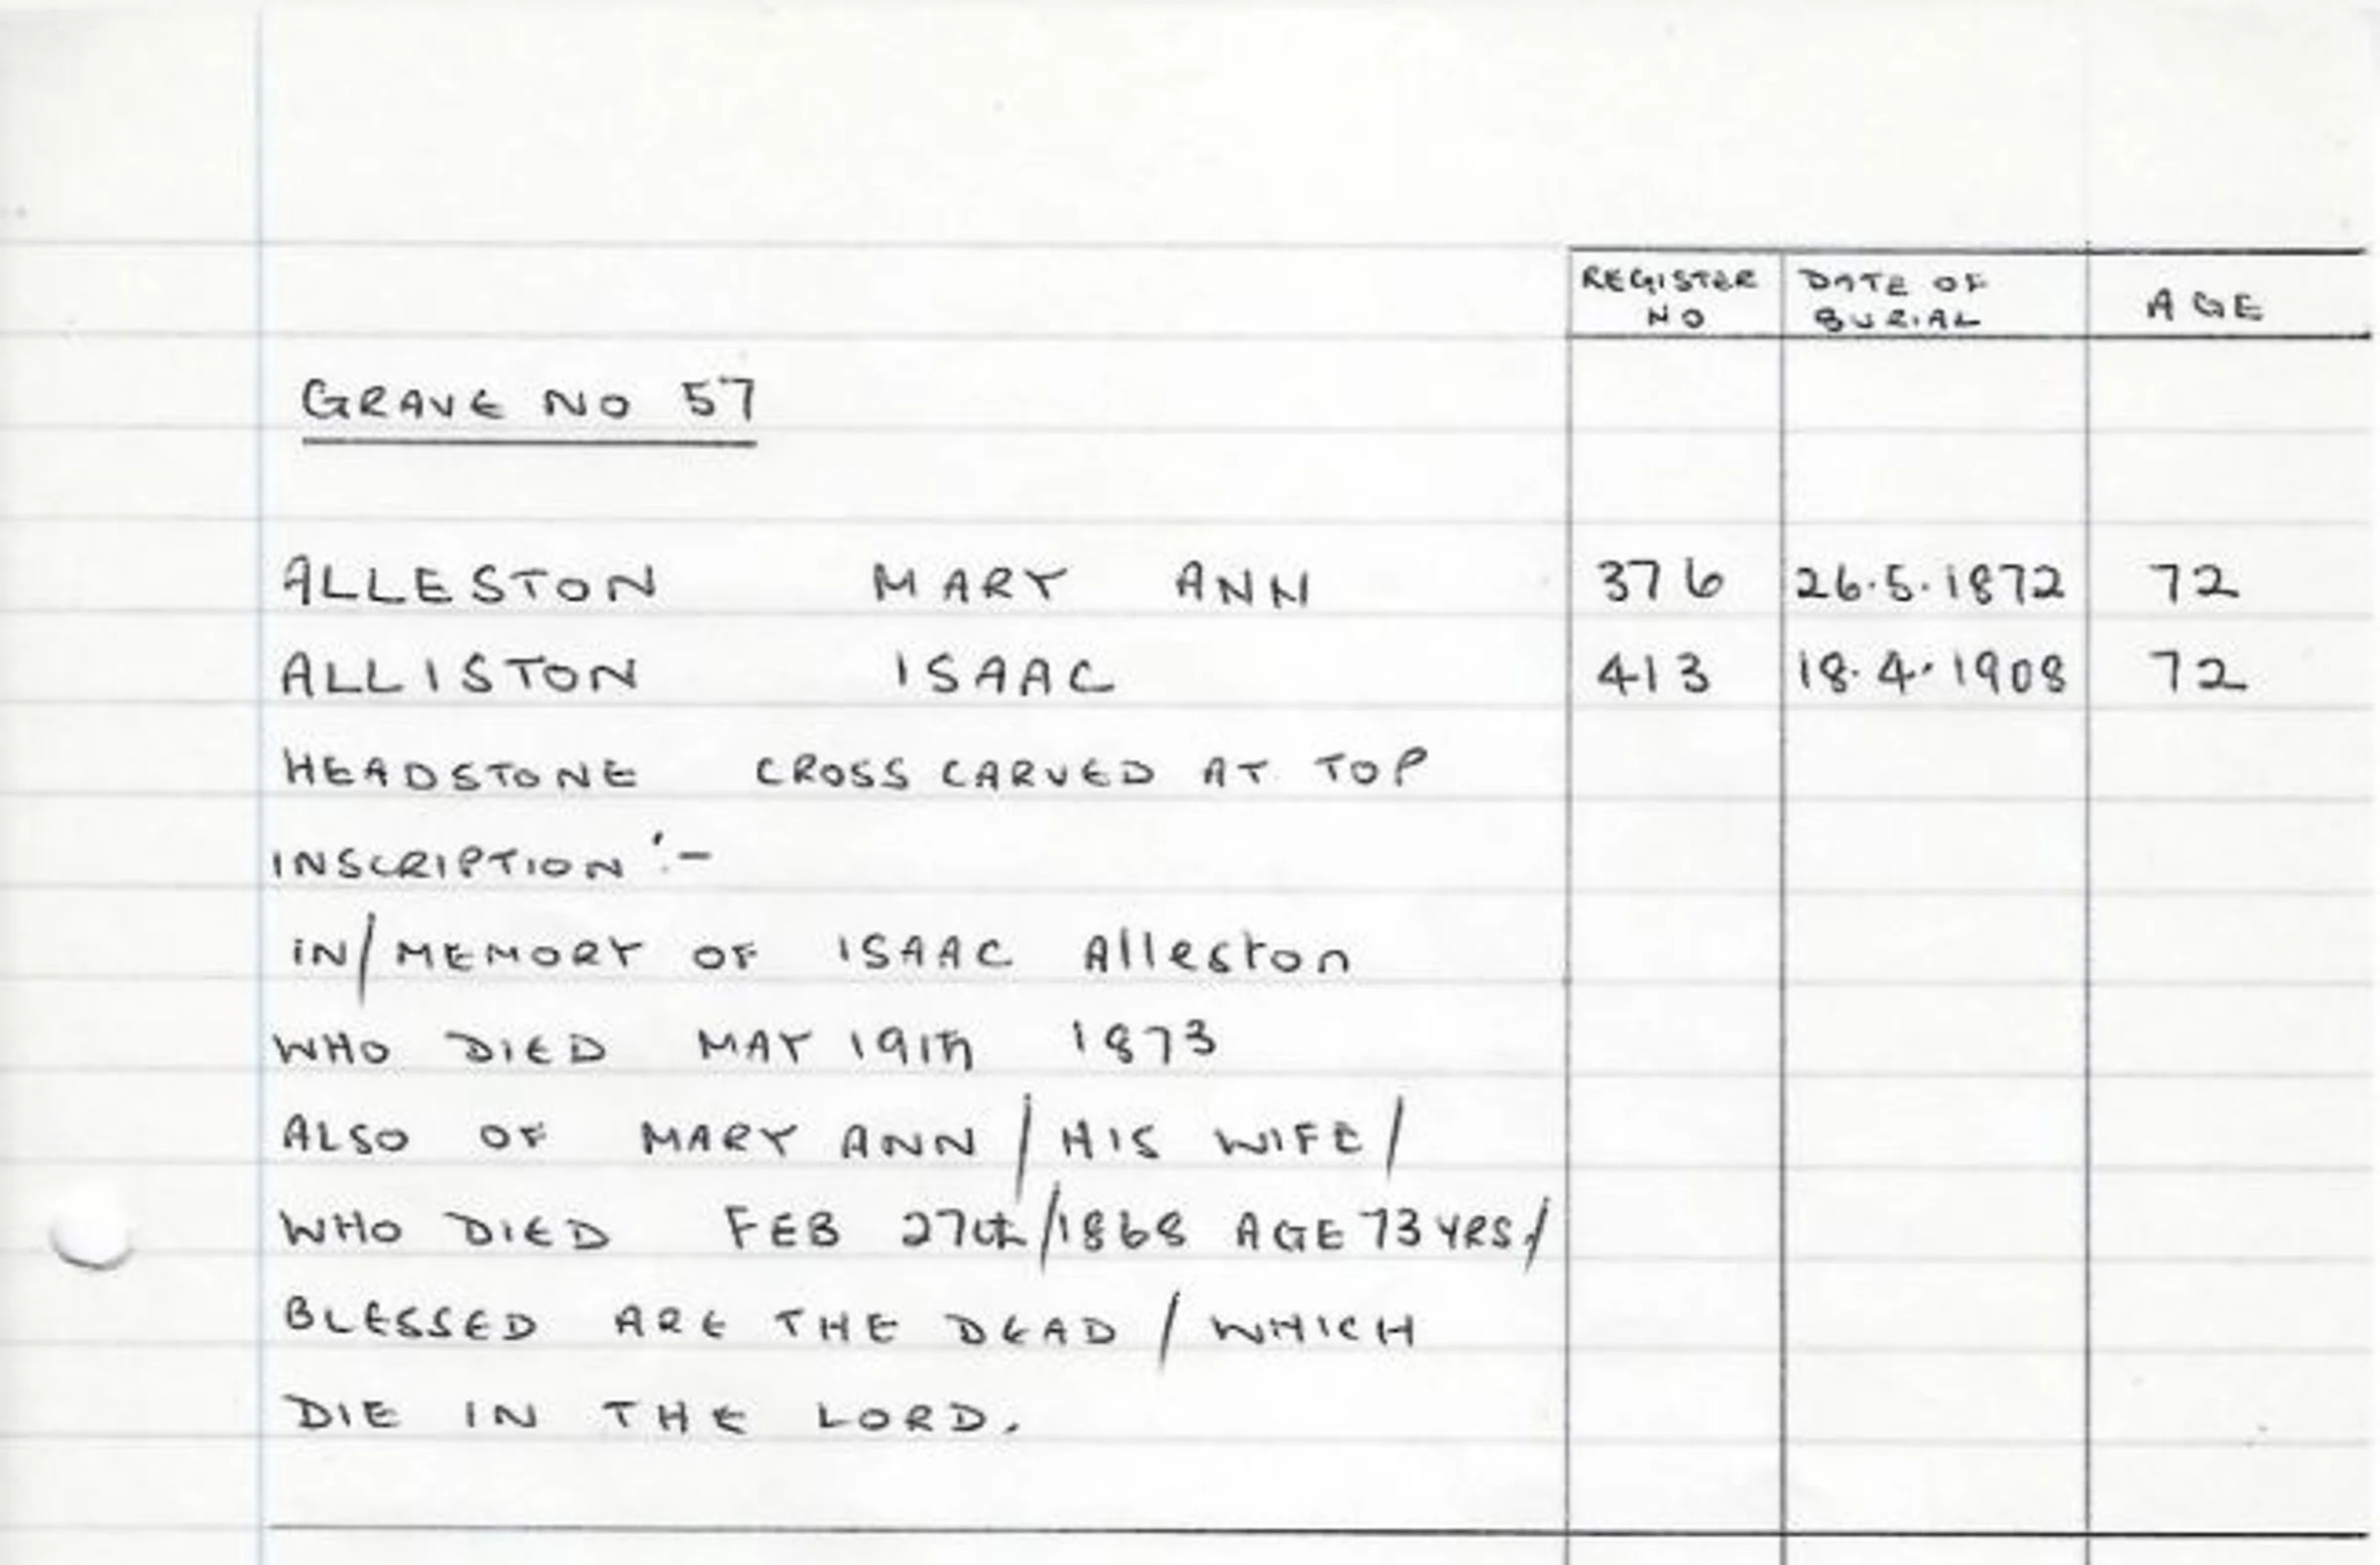 REGISTER NO DATE OF BURIAL AGE
GRAVE NO 57
ALLESTON MARY ANN 376 26.5.1872 72
ALLISTON ISAAC 413 18.4.1908 72
HEADSTONE CROSS CARVED AT TOP
INSCRIPTION :-
IN/MEMORY OF ISAAC Alleston
WHO DIED MAY 19TH 1873
ALSO OF MARY ANN / HIS WIFE/
WHO DIED FEB 27th/1868 AGE 73 YRS/
BLESSED ARE THE DEAD / WHICH
DIE IN THE LORD.